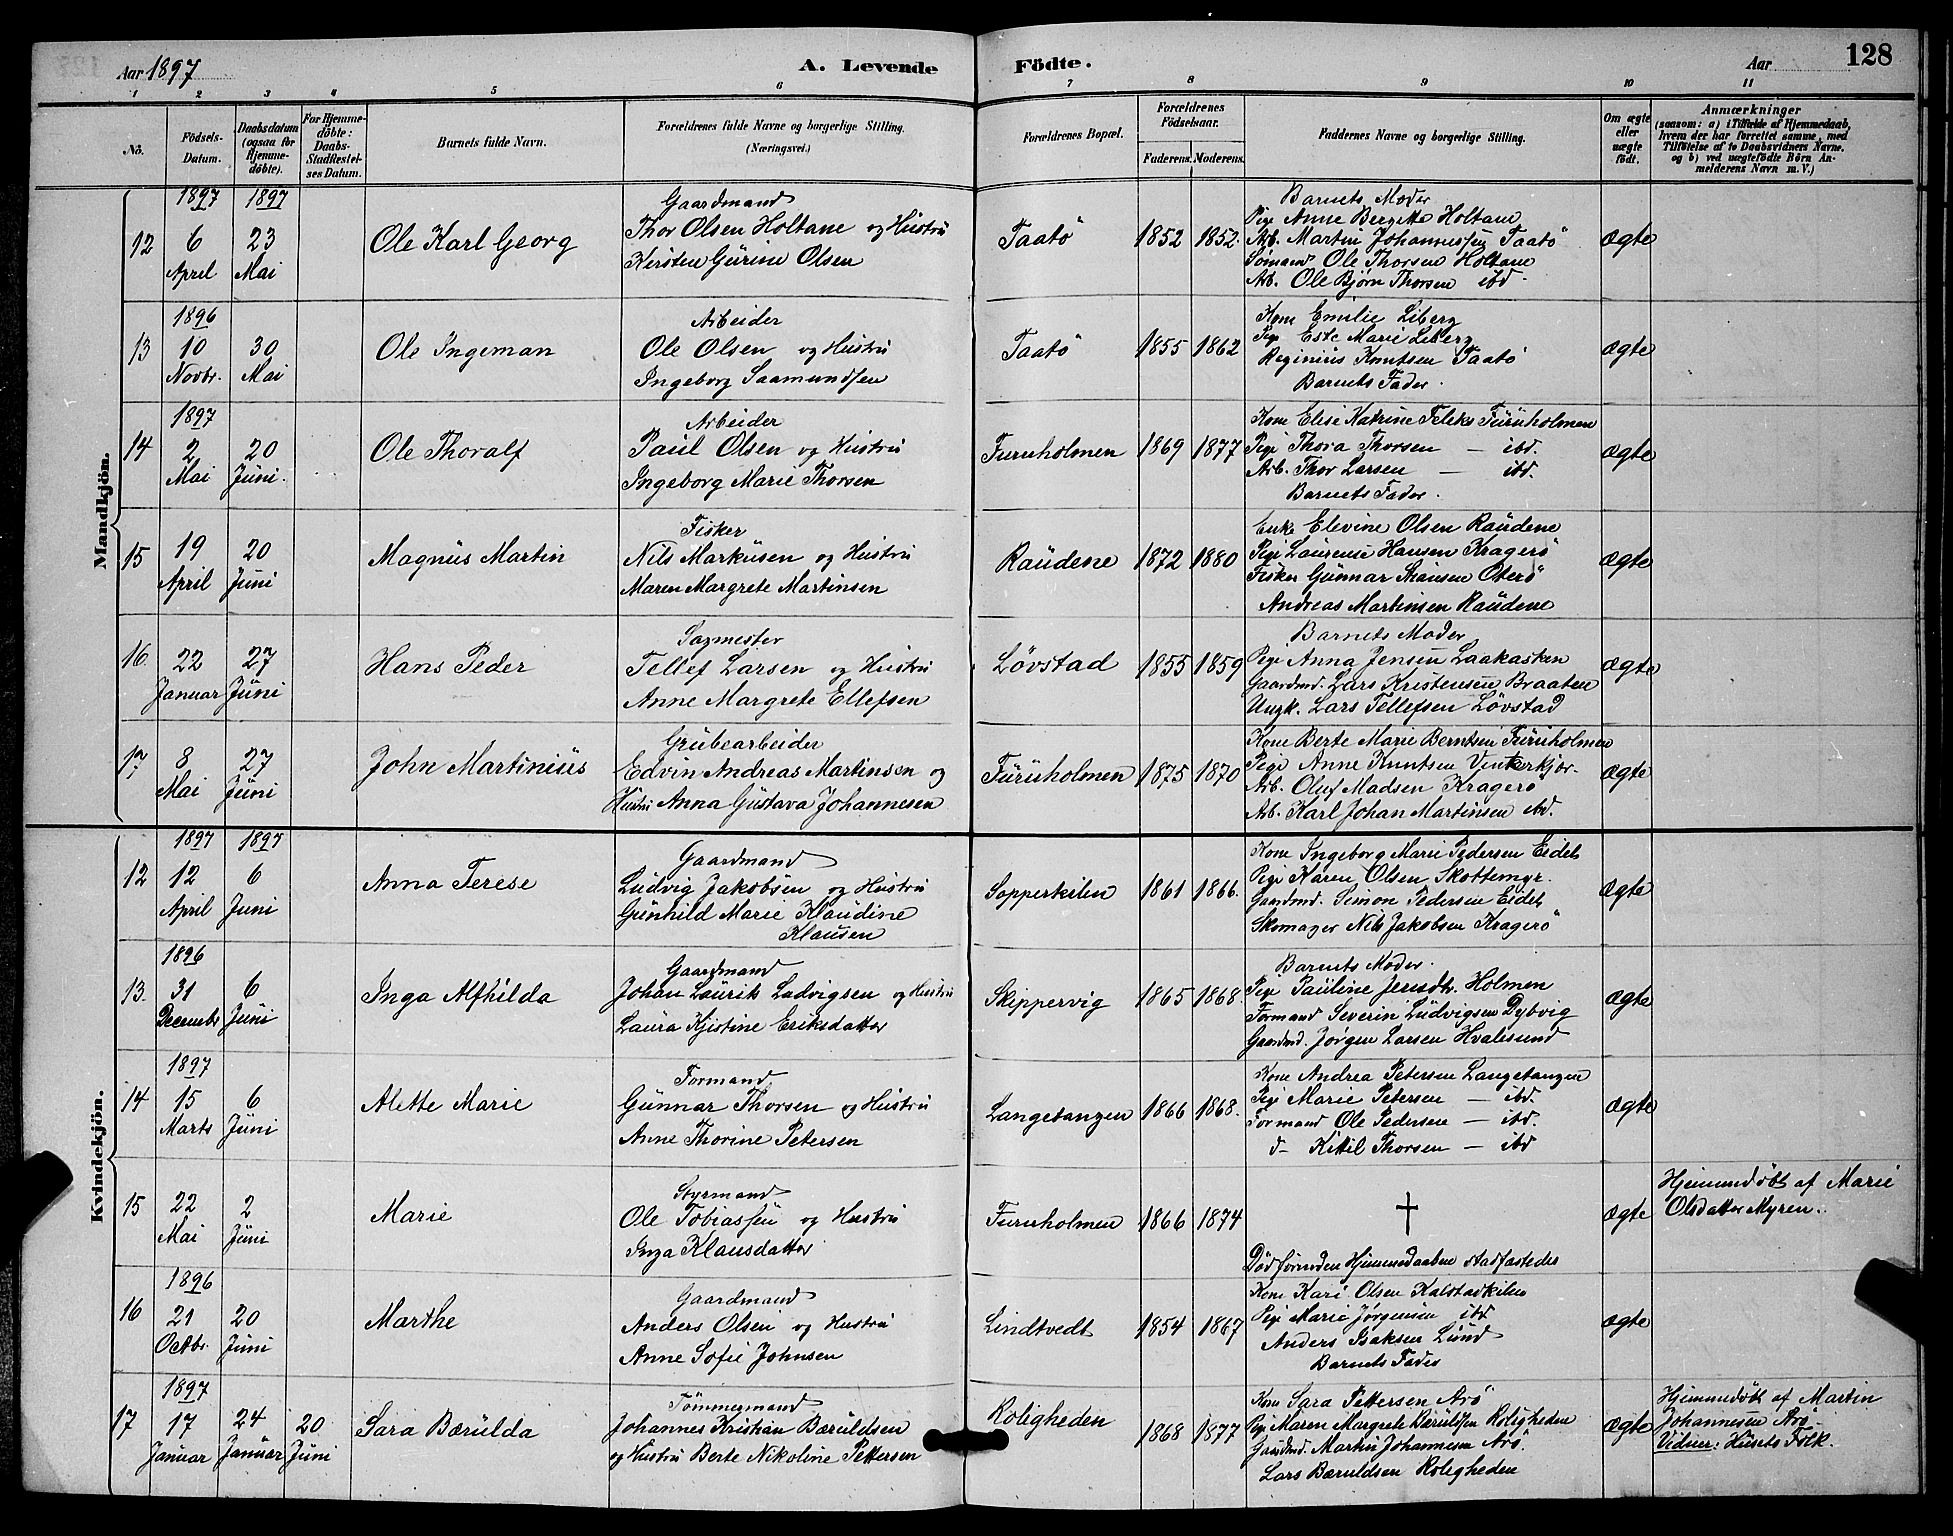 128
Aar 1897 A. Levende Födte. Aar
1 2 3 4 5 6 7 8 9 10 11
No. Födsels-Datum. Daabsdatum (ogsaa for Hjemmedöbte). For Hjemmedöbte: Daabs-Stadfæstelses Datum. Barnets fulde Navn. Forældrenes fulde Navne og borgerlige Stilling. (Næringsvei.) Forældrenes Bopæl. Forældrenes Födselsaar. Faderens. Moderens. Faddernes Navne og borgerlige Stilling. Om ægte eller uægte födt. Anmærkninger (saasom: a) i Tilfælde af Hjemmedaab, hvem der har forrettet samme, med Tilföielse af to Daabsvidners Navne, og b) ved uægtefödte Börn Anmelderens Navn m. V.)
Mandkjön.
12 1897 6 April 1897 23 Mai
Ole Karl Georg
Gaardmand
Thor Olsen Holtane og Hustru
Kersten Gurine Olsen
Taatö 1852 1852.
Barnets Moder
Pige Anne Bergette Holtane
Arb. Martin Johannessen Taatö
Sömand Ole Thorsen Holtane
Arb. Ole Bjørn Thorsen ibd
ægte
13 1896 10 Novbr. 30 Mai
Ole Ingeman
Arbeider
Ole Olsen og Hustru
Ingeborg Saamundsen
Taatö 1855 1862
Kone Emilie Liberg
Pige Este Marie Liberg
Reginius Knutsen Taatö
Barnets Fader.
ægte
14 1897 2 Mai 20 Juni.
Ole Thoralf
Arbeider
Paul Olsen og Hustru
Ingeborg Marie Thorsen
Furuholmen 1869 1877
Kone Elise Katrine Feleks Furuholmen
Pige Thora Thorsen — ibd.
Arb. Thor Larsen — ibd.
Barnets Fader.
ægte
15 19 April 20 Juni
Magnus Martin
Fisker
Nils Markusen og Hustru
Maren Margrete Martinsen
Raudene 1872 1880
Enke Elevine Olsen Raudene
Pige Laurense Hansen Kragerö
Fisker Gunnar Hansen Oterö
Andreas Martinsen Raudene
ægte
16. 22 Januar 27 Juni
Hans Peder
Sagmester
Tellef Larsen og Hustru
Anne Margrete Ellefsen
Løvstad 1855 1859
Barnets Moder
Pige Anna Jensen Laakasken
Gaardmd. Lars Kristensen Braaten
Ungk. Lars Tellefsen Løvstad
ægte
17 8 Mai 27 Juni
John Martinius
Grubearbeider
Edvin Andreas Martinsen og
Hustru Anna Gustava Johannesen
Furuholmen 1875 1870
Kone Berte Marie Berntsen Furuholmen
Pige Anne Knutsen Vinkerkjær.
Arb. Oluf Madsen Kragerö
Arb. Karl Johan Martinsen ibd.
ægte
Kvindekjön.
12 1897 12 April 1897 6 Juni
Anna Terese
Gaardmand
Ludvig Jakobsen og Hustru
Gunhild Marie Klaudine
Klausen
Sopperkilen 1861 1866.
Kone Ingeborg Marie Pedersen Eidet
Pige Karen Olsen Skottemyr.
Gaardmd. Simon Pedersen Eidet
Skomager Nils Jakobsen Kragerö
ægte
13. 1896 31 Decembr 6 Juni
Inga Alfhilda
Gaardmand
Johan Laurits Ludvigsen og Hustru
Laura Kjistine Eriksdatter
Skippervig 1865 1868.
Barnets Moder.
Pige Pauline Jensdtr. Holmen
Formand Severin Ludvigsen Dybvig
Gaardmd. Jørgen Larsen Hvalesund
ægte
14 1897 15 Marts 6 Juni
Alette Marie
Formand
Gunnar Thorsen og Hustru
Anne Thorine Petersen
Langetangen 1866 1868.
Kone Andrea Petersen Langetangen
Pige Marie Petersen — ibd.
Formand Ole Pedersen — ibd.
d- Kittil Thorsen — ibd
ægte
15 22 Mai 2 Juni
Marie
Styrmand
Ole Tobiassen og Hustru
Inga Klausdatter
Furuholmen 1866 1874
†
Död förinden Hjemmedaaben stadfæstedes
ægte
Hjemmedöbt af Marie
Olsdatter Myren.
16 1896 21 Octbr. 20 Juni
Marthe
Gaardmand
Anders Olsen og Hustru
Anne Sofie Johnsen
Lindtvedt 1854 1867
Kone Kari Olsen Kalstadkilen
Pige Marie Jørgensen ibd
Anders Isaksen Lund
Barnets Fader
ægte
17 1897 17 Januar 24 Januar 20 Juni
Sara Bærulda
Tömmermand
Johannes Kristian Bæruldsen
og Hustru Berte Nikoline Pettersen
Roligheden 1868 1877
Kone Sara Pettersen Arö
Pige Maren Margrete Bæruldsen Roligheden
Gaardmd. Martin Johannesen Arö.
Lars Bæruldsen Roligheden
ægte
Hjemmedöbt af Martin
Johannesen Arö.
Vidner: Husets Folk.